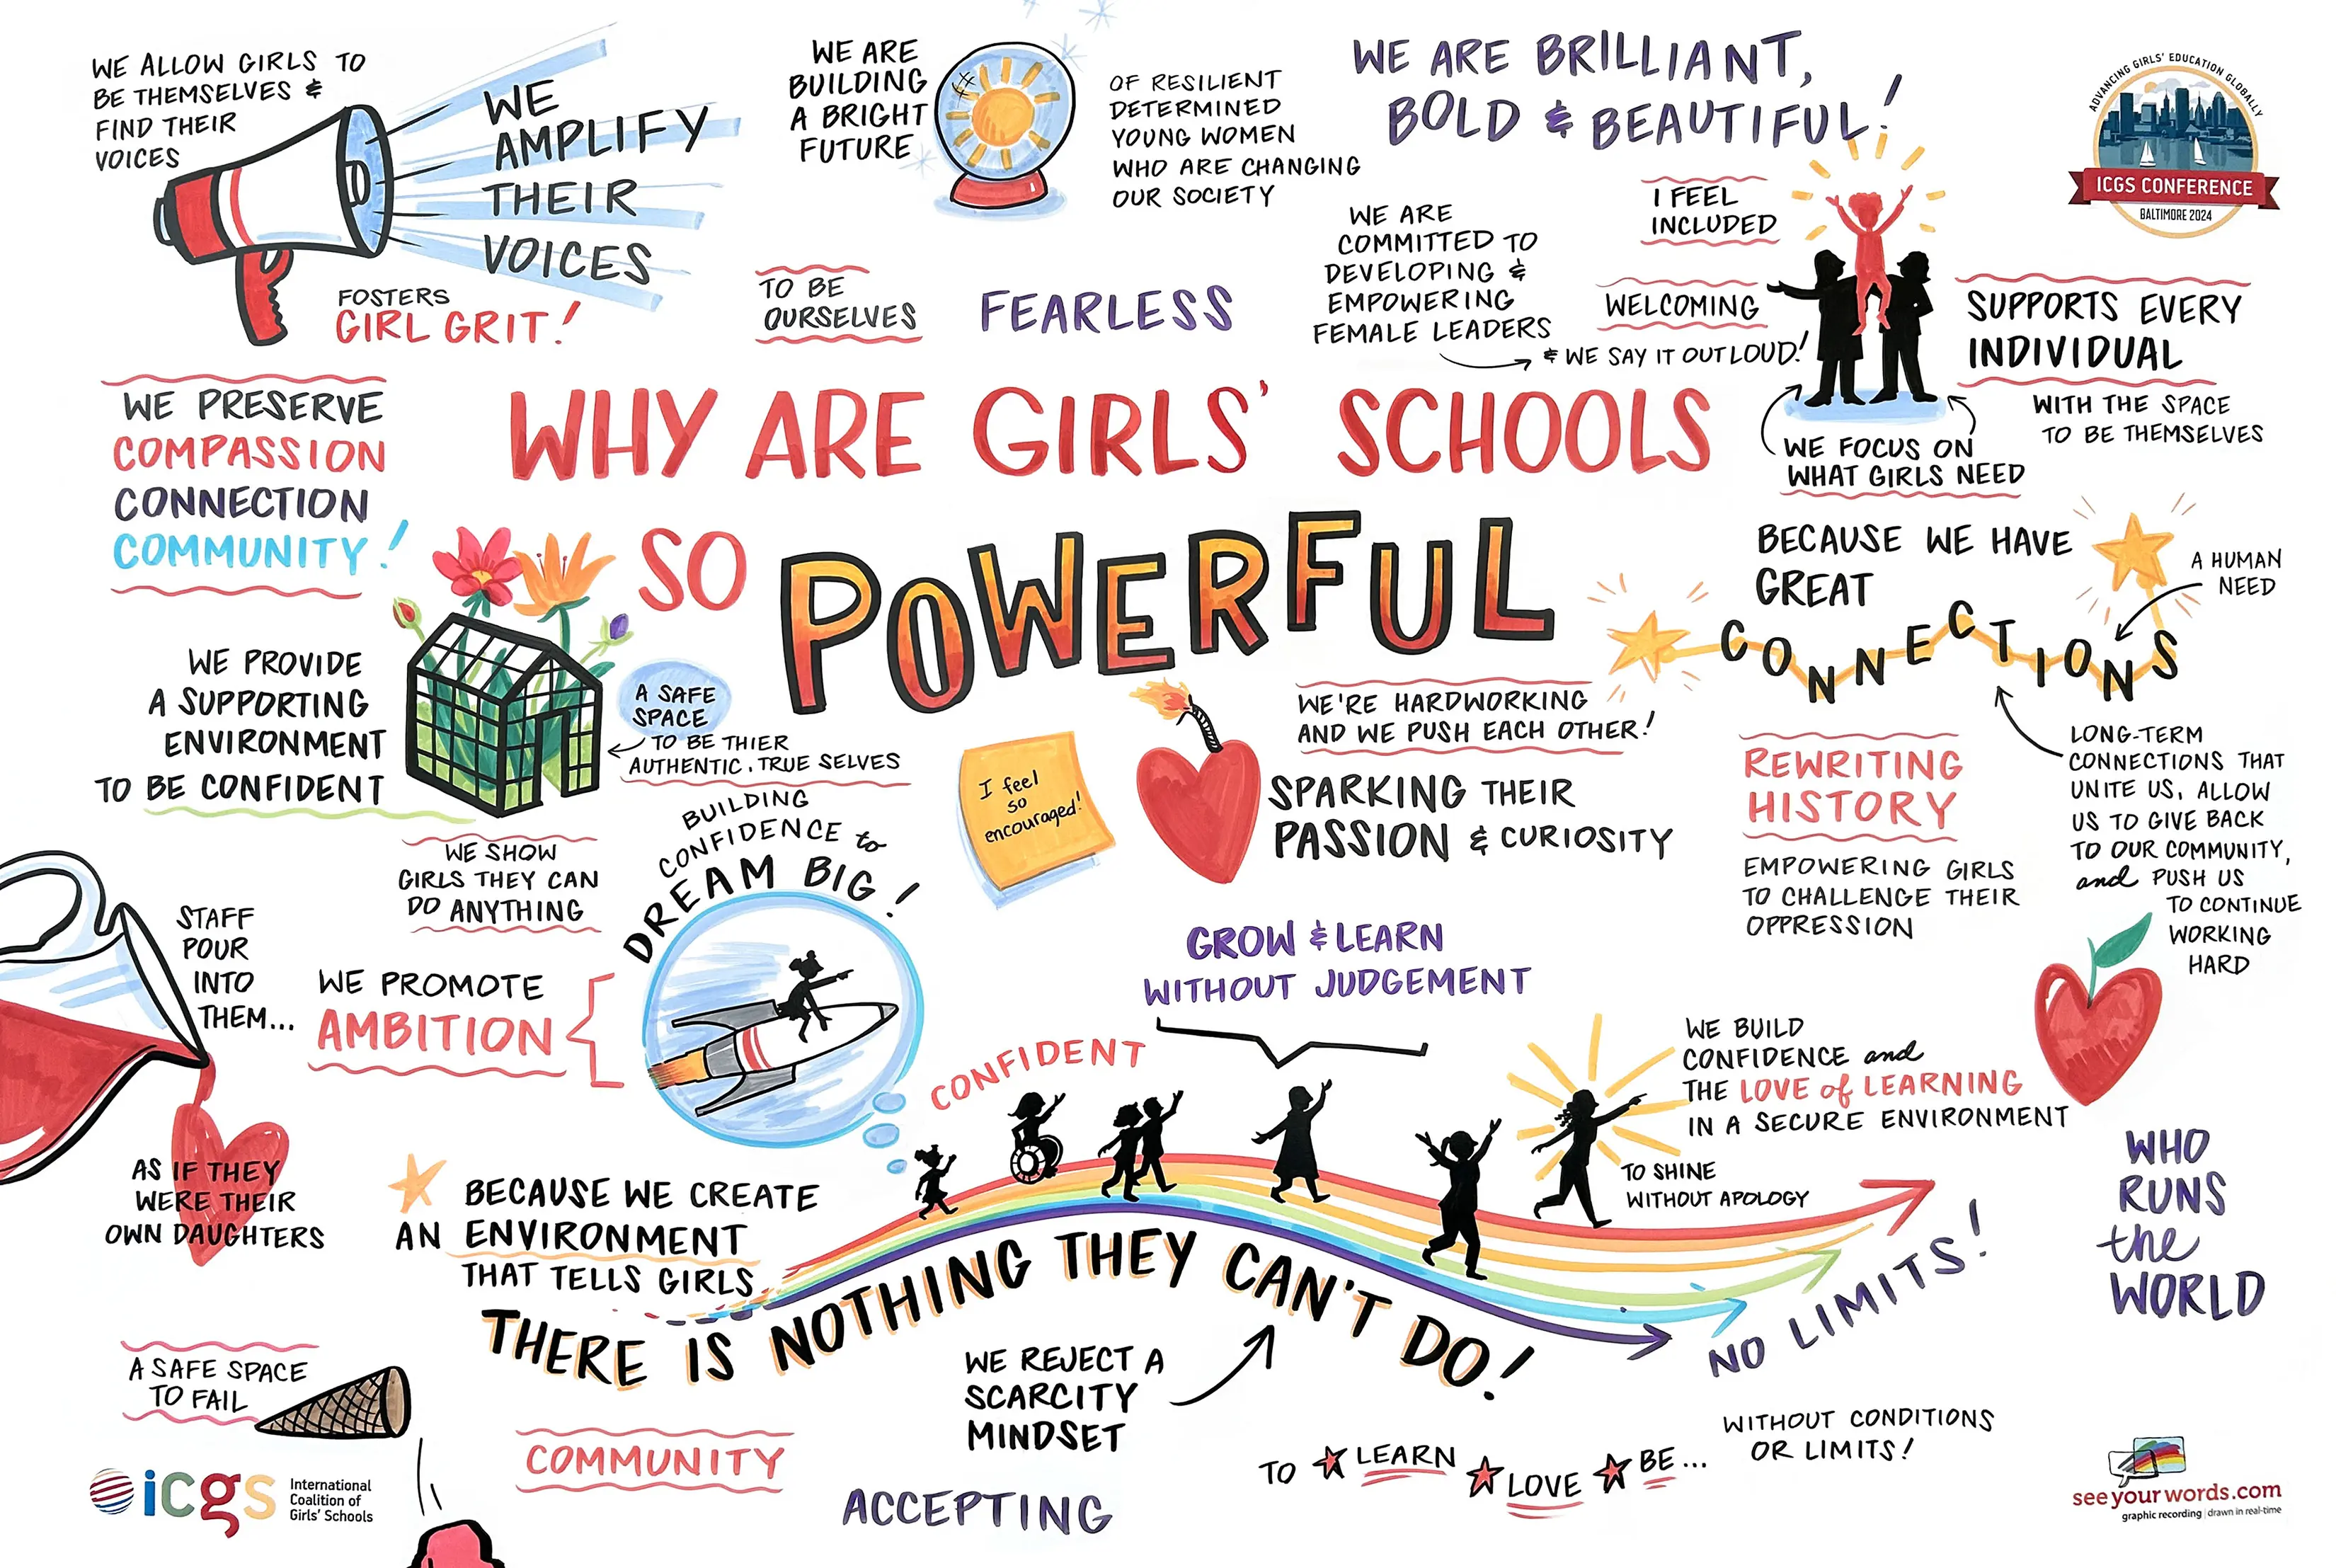 WE ALLOW GIRLS TO
BE THEMSELVES &
FIND THEIR
VOICES
WE
AMPLIFY
THEIR
VOICES
FOSTERS
GIRL GRIT!
WE ARE
BUILDING
A BRIGHT
FUTURE
OF RESILIENT
DETERMINED
YOUNG WOMEN
WHO ARE CHANGING
OUR SOCIETY
TO BE
OURSELVES
FEARLESS
WE ARE BRILLIANT,
BOLD & BEAUTIFUL!
WE ARE
COMMITTED TO
DEVELOPING &
EMPOWERING
FEMALE LEADERS
& WE SAY IT OUT LOUD!
I FEEL
INCLUDED
WELCOMING
ADVANCING GIRLS' EDUCATION GLOBALLY
ICGS CONFERENCE
BALTIMORE 2024
SUPPORTS EVERY
INDIVIDUAL
WITH THE SPACE
TO BE THEMSELVES
WE FOCUS ON
WHAT GIRLS NEED
WE PRESERVE
COMPASSION
CONNECTION
COMMUNITY!
WHY ARE GIRLS' SCHOOLS
SO POWERFUL
BECAUSE WE HAVE
GREAT
CONNECTIONS
A HUMAN
NEED
LONG-TERM
CONNECTIONS THAT
UNITE US, ALLOW
US TO GIVE BACK
TO OUR COMMUNITY,
and PUSH US
TO CONTINUE
WORKING
HARD
WE PROVIDE
A SUPPORTING
ENVIRONMENT
TO BE CONFIDENT
A SAFE
SPACE
TO BE THIER
AUTHENTIC, TRUE SELVES
I feel
so
encouraged!
WE'RE HARDWORKING
AND WE PUSH EACH OTHER!
SPARKING THEIR
PASSION & CURIOSITY
REWRITING
HISTORY
EMPOWERING GIRLS
TO CHALLENGE THEIR
OPPRESSION
WE SHOW
GIRLS THEY CAN
DO ANYTHING
BUILDING
CONFIDENCE to
DREAM BIG!
STAFF
POUR
INTO
THEM...
AS IF THEY
WERE THEIR
OWN DAUGHTERS
WE PROMOTE
AMBITION
GROW & LEARN
WITHOUT JUDGEMENT
CONFIDENT
WE BUILD
CONFIDENCE and
THE LOVE of LEARNING
IN A SECURE ENVIRONMENT
TO SHINE
WITHOUT APOLOGY
WHO
RUNS
the
WORLD
BECAUSE WE CREATE
AN ENVIRONMENT
THAT TELLS GIRLS
THERE IS NOTHING THEY CAN'T DO!
NO LIMITS!
WE REJECT A
SCARCITY
MINDSET
A SAFE SPACE
TO FAIL
COMMUNITY
ACCEPTING
TO LEARN LOVE BE...
WITHOUT CONDITIONS
OR LIMITS!
icgs
International
Coalition of
Girls' Schools
seeyourwords.com
graphic recording | drawn in real-time